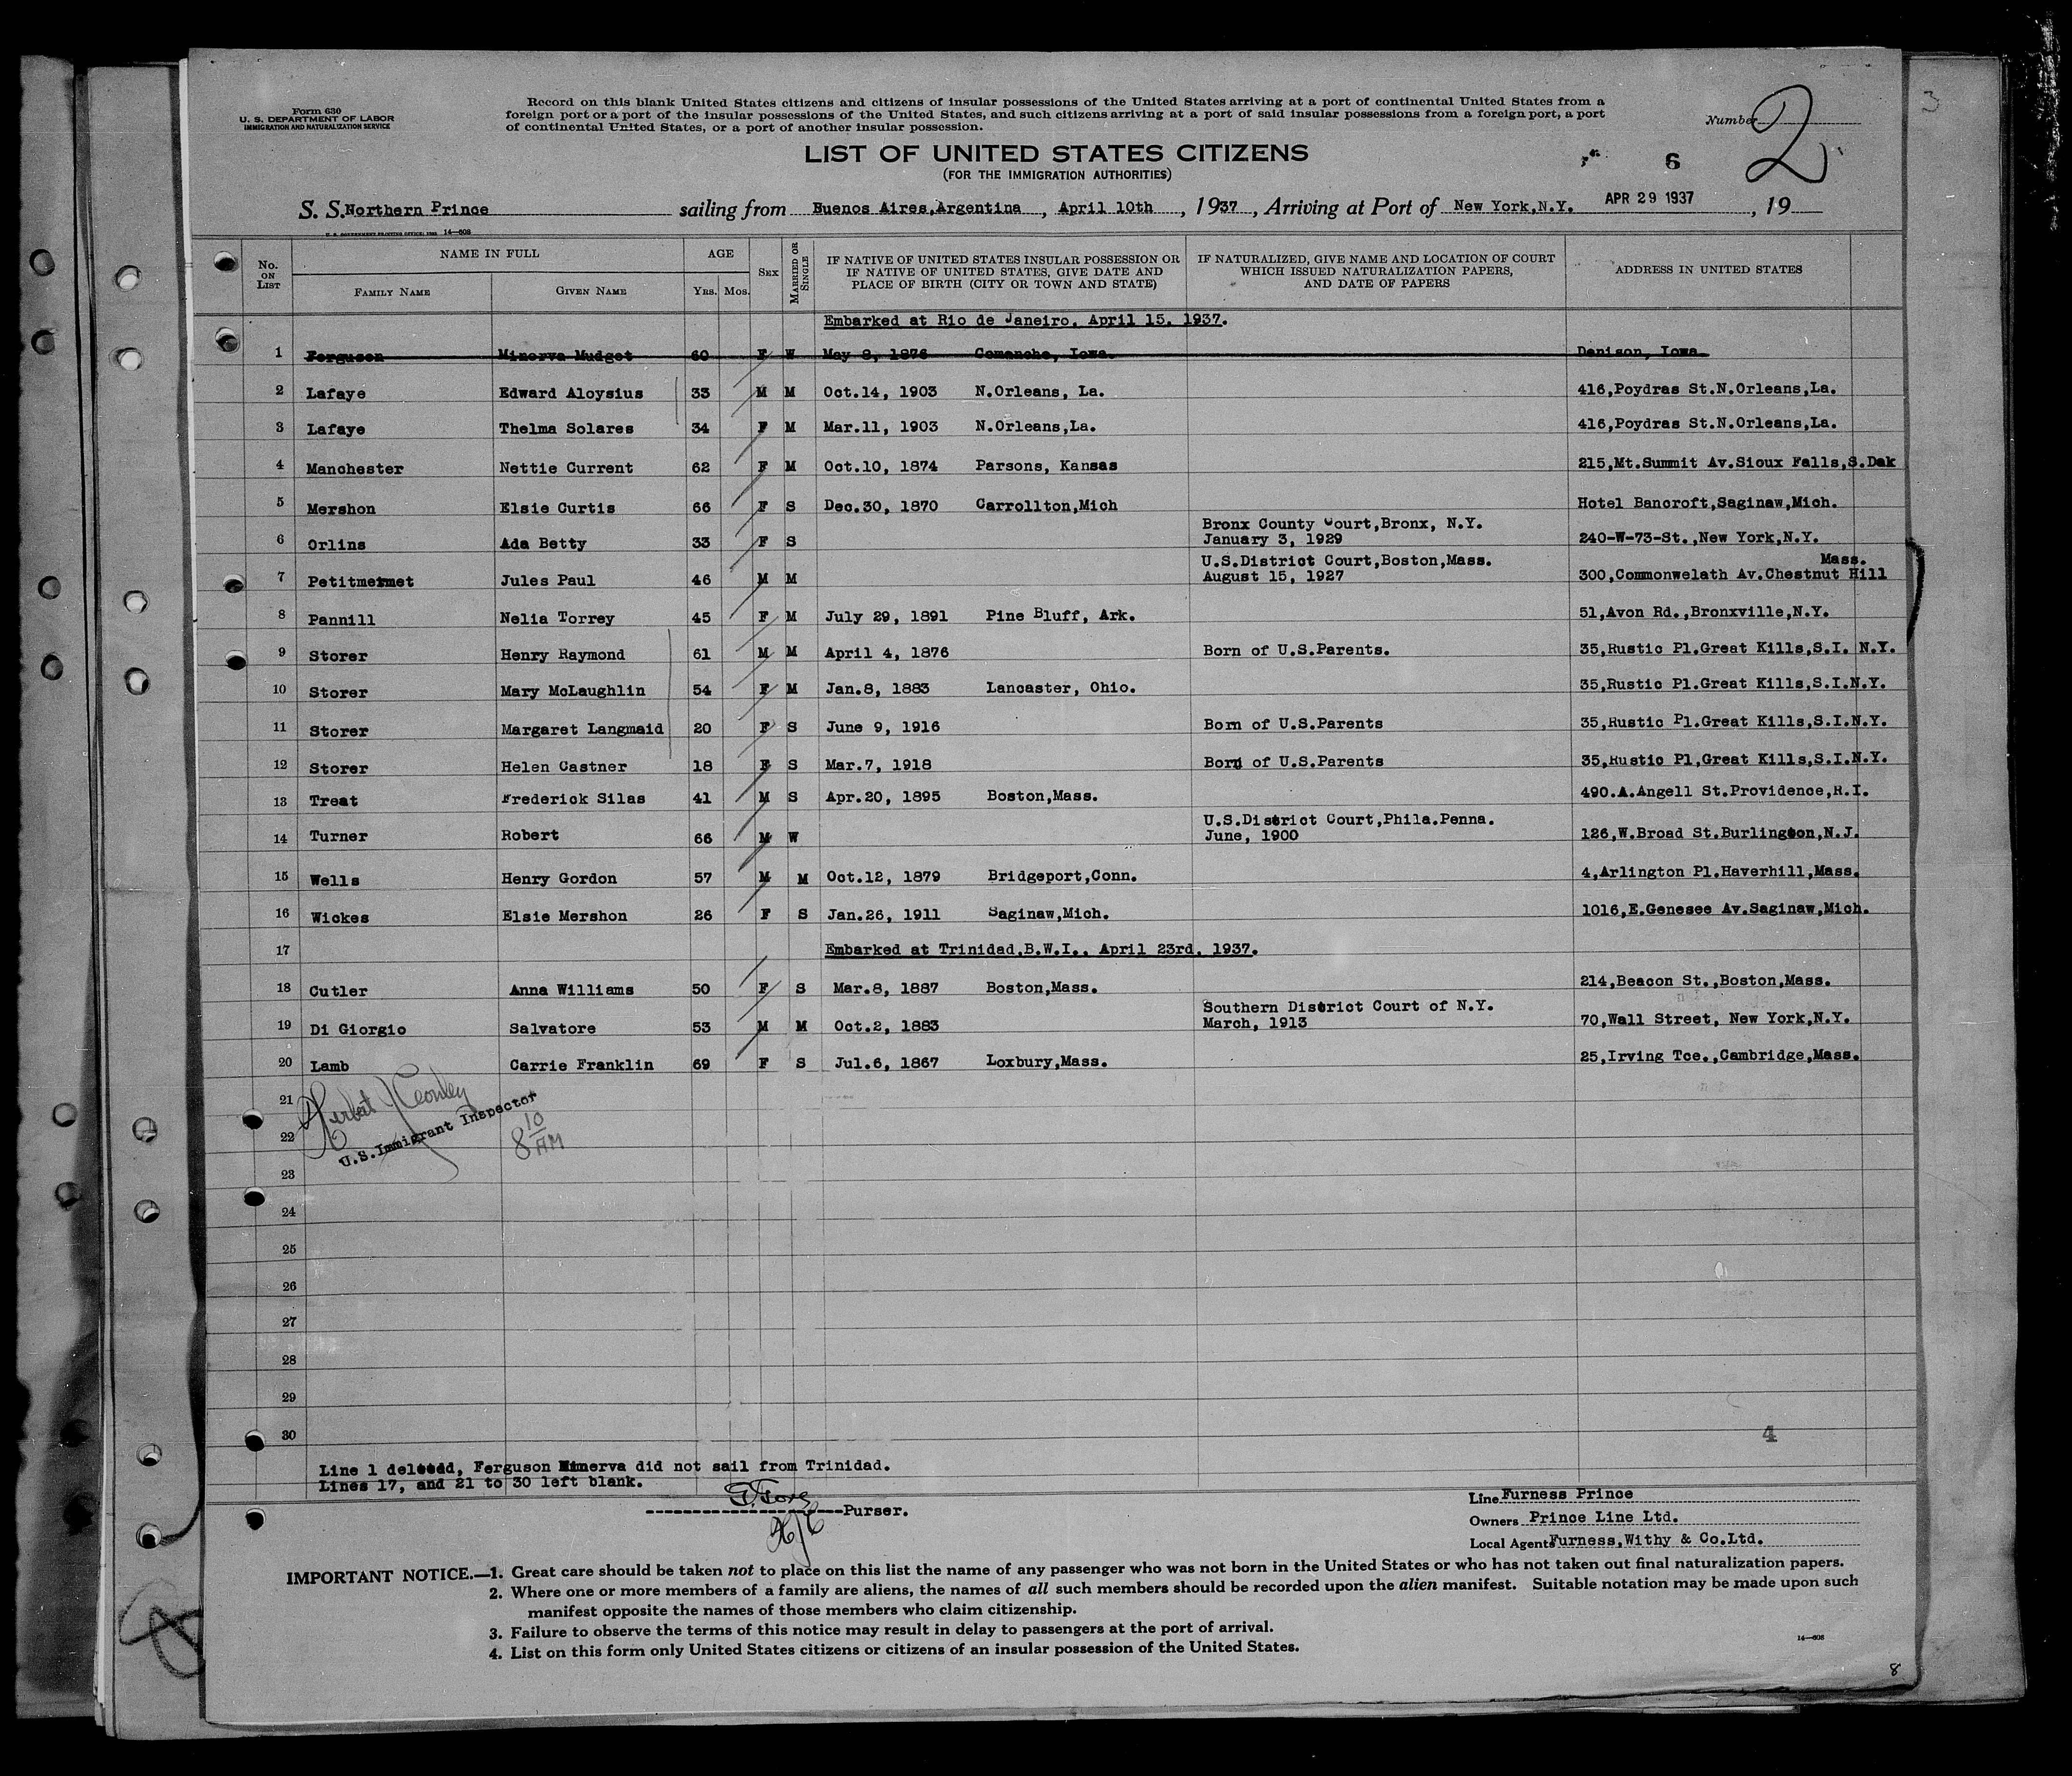 Form 630
U. S. DEPARTMENT OF LABOR
IMMIGRATION AND NATURALIZATION SERVICE
Record on this blank United States citizens and citizens of insular possessions of the United States arriving at a port of continental United States from a
foreign port or a port of the insular possessions of the United States, and such citizens arriving at a port of said insular possessions from a foreign port, a port
of continental United States, or a port of another insular possession.
Number 2
3
LIST OF UNITED STATES CITIZENS
(FOR THE IMMIGRATION AUTHORITIES)
6
S. S. Northern Prince sailing from Buenos Aires,Argentina, April 10th, 1937, Arriving at Port of New York,N.Y. APR 29 1937, 19
14—608
No. ON LIST
NAME IN FULL
FAMILY NAME GIVEN NAME
AGE
YRS. MOS.
SEX
MARRIED OR SINGLE
IF NATIVE OF UNITED STATES INSULAR POSSESSION OR
IF NATIVE OF UNITED STATES, GIVE DATE AND
PLACE OF BIRTH (CITY OR TOWN AND STATE)
IF NATURALIZED, GIVE NAME AND LOCATION OF COURT
WHICH ISSUED NATURALIZATION PAPERS,
AND DATE OF PAPERS
ADDRESS IN UNITED STATES
Embarked at Rio de Janeiro, April 15, 1937.
1 Ferguson Minerva Mudget 60 F W May 8, 1876 Comanche, Iowa. Denison, Iowa.
2 Lafaye Edward Aloysius 33 M M Oct.14, 1903 N.Orleans, La. 416,Poydras St.N.Orleans,La.
3 Lafaye Thelma Solares 34 F M Mar.11, 1903 N.Orleans,La. 416,Poydras St.N.Orleans,La.
4 Manchester Nettie Current 62 F M Oct.10, 1874 Parsons, Kansas 215,Mt.Summit Av.Sioux Falls,S.Dak
5 Mershon Elsie Curtis 66 F S Dec.30, 1870 Carrollton,Mich Hotel Bancroft,Saginaw,Mich.
Bronx County Court,Bronx, N.Y.
6 Orlins Ada Betty 33 F S January 3, 1929 240-W-73-St.,New York,N.Y.
U.S.District Court,Boston,Mass. Mass.
7 Petitmermet Jules Paul 46 M M August 15, 1927 300,Commonwelath Av.Chestnut Hill
8 Pannill Nelia Torrey 45 F M July 29, 1891 Pine Bluff, Ark. 51,Avon Rd.,Bronxville,N.Y.
9 Storer Henry Raymond 61 M M April 4, 1876 Born of U.S.Parents. 35,Rustic Pl.Great Kills,S.I. N.Y.
10 Storer Mary McLaughlin 54 F M Jan.8, 1883 Lancaster, Ohio. 35,Rustic Pl.Great Kills,S.I.N.Y.
11 Storer Margaret Langmaid 20 F S June 9, 1916 Born of U.S.Parents 35,Rustic Pl.Great Kills,S.I.N.Y.
12 Storer Helen Castner 18 F S Mar.7, 1918 Born of U.S.Parents 35,Rustic Pl,Great Kills,S.I.N.Y.
13 Treat Frederick Silas 41 M S Apr.20, 1895 Boston,Mass. 490.A.Angell St.Providence,R.I.
U.S.District Court,Phila.Penna.
14 Turner Robert 66 M W June, 1900 126,W.Broad St.Burlington,N.J.
15 Wells Henry Gordon 57 M M Oct.12, 1879 Bridgeport,Conn. 4,Arlington Pl.Haverhill,Mass.
16 Wickes Elsie Mershon 26 F S Jan.26, 1911 Saginaw,Mich. 1016,E.Genesee Av.Saginaw,Mich.
17 Embarked at Trinidad,B.W.I., April 23rd, 1937.
18 Cutler Anna Williams 50 F S Mar.8, 1887 Boston,Mass. 214,Beacon St.,Boston,Mass.
Southern District Court of N.Y.
19 Di Giorgio Salvatore 53 M M Oct.2, 1883 March, 1913 70,Wall Street, New York,N.Y.
20 Lamb Carrie Franklin 69 F S Jul.6, 1867 Loxbury,Mass. 25,Irving Tce.,Cambridge,Mass.
21
22 U.S.Immigrant Inspector 8 10 AM
23
24
25
26
27
28
29
30
4
Line 1 deleted, Ferguson Minerva did not sail from Trinidad.
Lines 17, and 21 to 30 left blank.
Purser.
Line Furness Prince
Owners Prince Line Ltd.
Local Agents Furness,Withy & Co.Ltd.
IMPORTANT NOTICE.—1. Great care should be taken not to place on this list the name of any passenger who was not born in the United States or who has not taken out final naturalization papers.
2. Where one or more members of a family are aliens, the names of all such members should be recorded upon the alien manifest. Suitable notation may be made upon such
manifest opposite the names of those members who claim citizenship.
3. Failure to observe the terms of this notice may result in delay to passengers at the port of arrival.
4. List on this form only United States citizens or citizens of an insular possession of the United States.
14—608
8